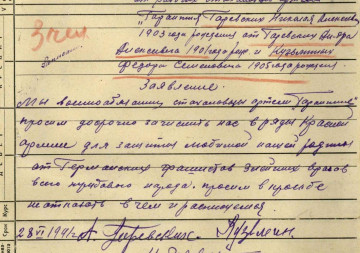 "Гарантия Гаревских Николая Алексеев
1903 года рождения от Гаревских Андре
Алексеевича 1901 года рожд и Кузьминых
Федора Семеновича 1905 года рождения.
3 чел
Заявление.
Мы военнообязанные стахановцы артели "Гарантия"
просим досрочно зачислить нас в ряды Красной
армии для защиты любимой нашей родины
от Германских фашистов злейших врагов
всего трудового народа. просим в просьбе
не отказать в чем и расписуемся.
28 VI 1941 г. А. Гаревских. Кузьмин.
Срок
Курс